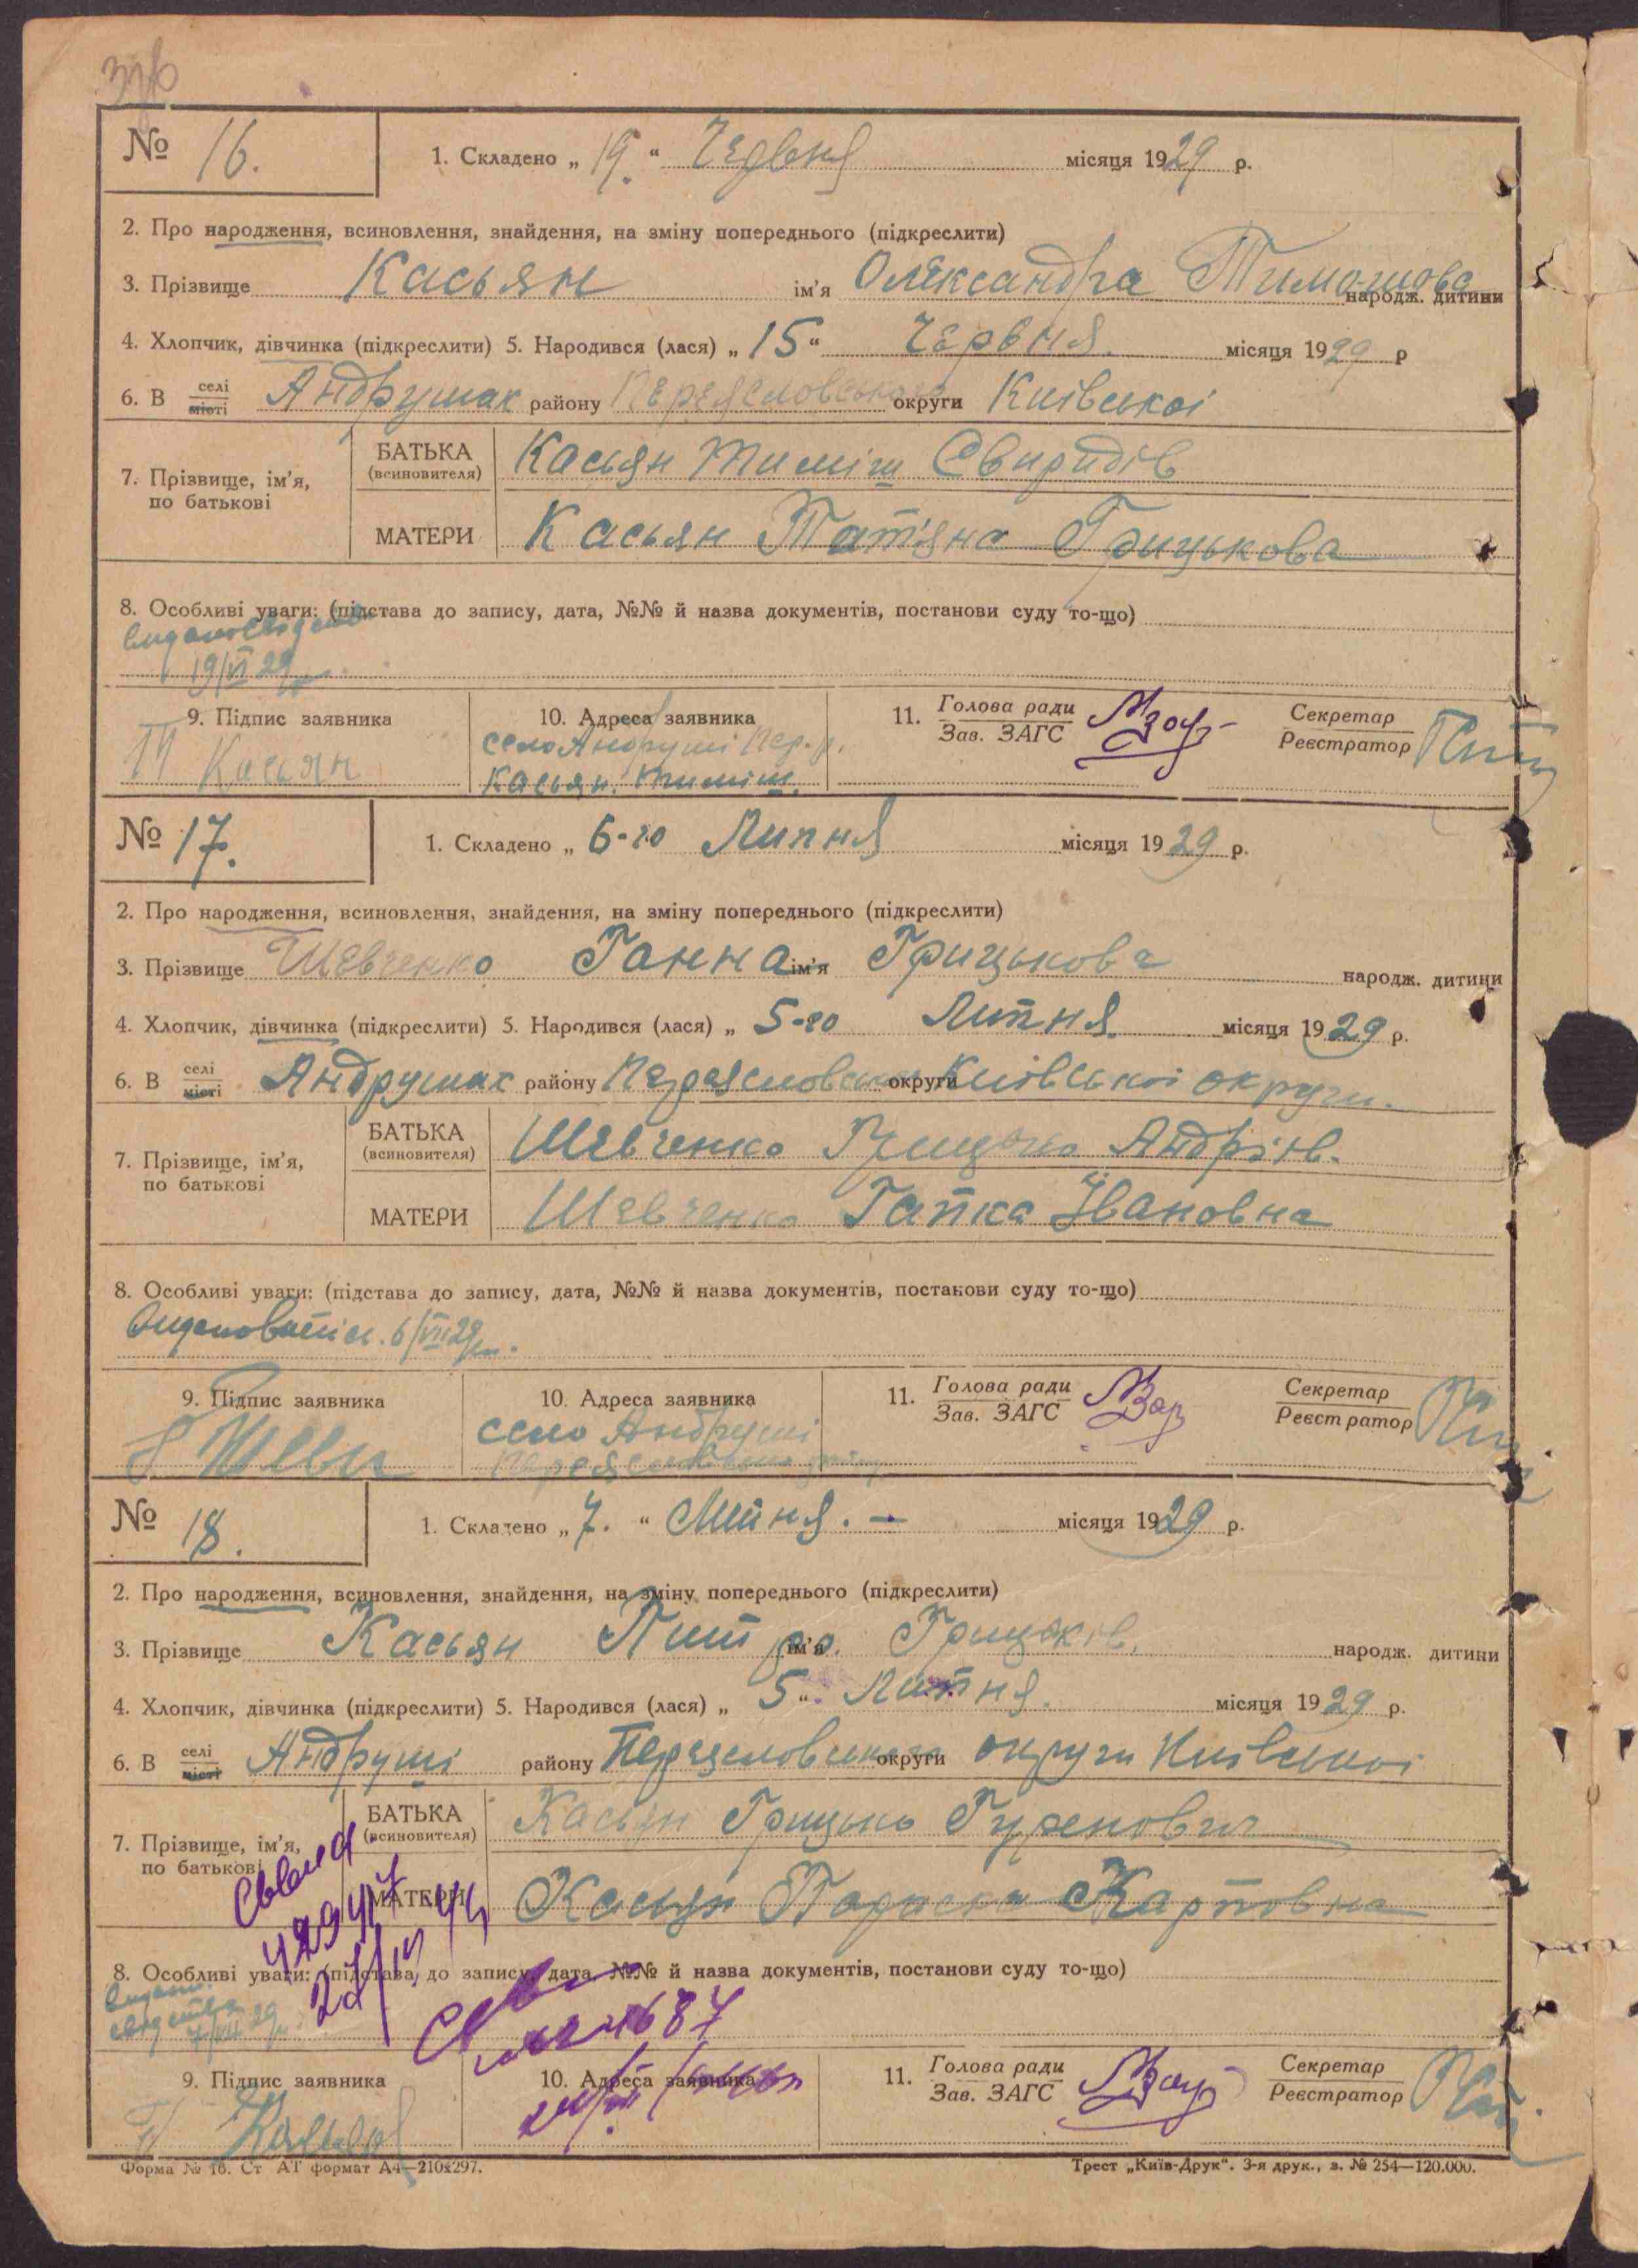 № 16.
1. Складено „ 19. “ Червня місяця 1929 р.
2. Про народження, всиновлення, знайдення, на зміну попереднього (підкреслити)
3. Прізвище Касьян ім'я Олександра Тимошова народж. дитини
4. Хлопчик, дівчинка (підкреслити) 5. Народився (лася) „ 15 “ Червня. місяця 1929 р
6. В селі місті Андрушах району Переяславського округи Київської
7. Прізвище, ім'я, по батькові
БАТЬКА (всиновителя) Касьян Тиміш Свиридів
МАТЕРИ Касьян Тат'яна Грицькова
8. Особливі уваги: (підстава до запису, дата, №№ й назва документів, постанови суду то-що)
19/VI 29
9. Підпис заявника
Касьян
10. Адреса заявника
село Андруші Пер. р.
Касьян. Тиміш.
11. Голова ради
Зав. ЗАГС
Секретар
Реєстратор
№ 17.
1. Складено „ 6-го Липня місяця 1929 р.
2. Про народження, всиновлення, знайдення, на зміну попереднього (підкреслити)
3. Прізвище Шевченко Ганна ім'я Грицькова народж. дитини
4. Хлопчик, дівчинка (підкреслити) 5. Народився (лася) „ 5-го Липня. місяця 1929 р.
6. В селі місті Андрушах району Переясловськ округи Київської округи.
7. Прізвище, ім'я, по батькові
БАТЬКА (всиновителя) Шевченко Грицько Андріїв.
МАТЕРИ Шевченко Гапка Івановна
8. Особливі уваги: (підстава до запису, дата, №№ й назва документів, постанови суду то-що)
6/VII 29
9. Підпис заявника
10. Адреса заявника
село Андруші
11. Голова ради
Зав. ЗАГС
Секретар
Реєстратор
№ 18.
1. Складено „ 7. “ Липня. — місяця 1929 р.
2. Про народження, всиновлення, знайдення, на зміну попереднього (підкреслити)
3. Прізвище Касьян ім'я Грицьків. народж. дитини
4. Хлопчик, дівчинка (підкреслити) 5. Народився (лася) „ 5 “. Липня. місяця 1929 р.
6. В селі місті Андруші району Переясловського округи округи Київської
7. Прізвище, ім'я, по батькові
БАТЬКА (всиновителя) Касьян Грицько
МАТЕРИ Касьян Параска Карповна
8. Особливі уваги: (підстава до запису, дата, №№ й назва документів, постанови суду то-що)
7/VII 29
9. Підпис заявника
10. Адреса заявника
11. Голова ради
Зав. ЗАГС
Секретар
Реєстратор
Форма № 16. Ст АТ формат А4—210х297.
Трест „Київ-Друк“. 3-я друк., з. № 254—120.000.